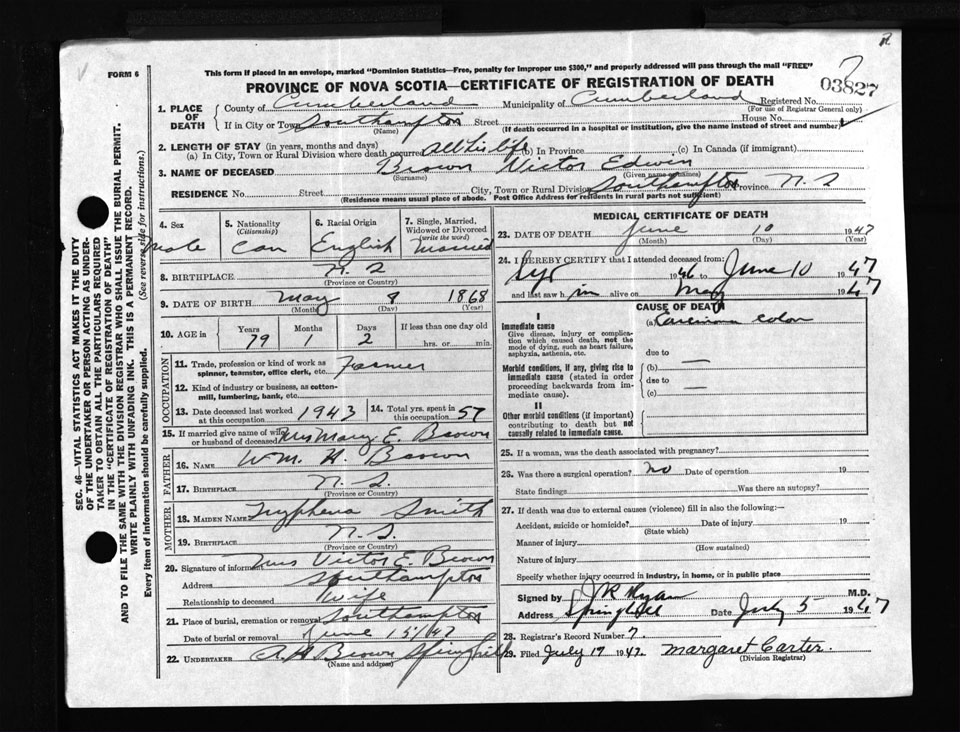 FORM 6
This form if placed in an envelope, marked "Dominion Statistics—Free, penalty for improper use $300," and properly addressed will pass through the mail "FREE"
PROVINCE OF NOVA SCOTIA—CERTIFICATE OF REGISTRATION OF DEATH
03827
1. PLACE OF DEATH
County of Cumberland Municipality of Cumberland Registered No.
(For use of Registrar General only)
If in City or Town Southampton Street House No.
(Name) (If death occurred in a hospital or institution, give the name instead of street and number)
2. LENGTH OF STAY (in years, months and days)
(a) In City, Town or Rural Division where death occurred All his life (b) In Province (c) In Canada (if immigrant)
3. NAME OF DECEASED Brown Victor Edwin
(Surname) (Given name or names)
RESIDENCE No. Street City, Town or Rural Division Southampton Province N.S
(Residence means usual place of abode. Post Office Address for residents in rural parts not sufficient)
4. Sex
male
5. Nationality
(Citizenship)
Can
6. Racial Origin
English
7. Single, Married, Widowed or Divorced
(write the word)
Married
8. BIRTHPLACE N.S
(Province or Country)
9. DATE OF BIRTH May 8 1868
(Month) (Day) (Year)
10. AGE in
Years Months Days If less than one day old
79 1 2 hrs. or min.
OCCUPATION
11. Trade, profession or kind of work as spinner, teamster, office clerk, etc. Farmer
12. Kind of industry or business, as cotton-mill, lumbering, bank, etc.
13. Date deceased last worked at this occupation 1943
14. Total yrs. spent in this occupation 57
15. If married give name of wife or husband of deceased Mrs Mary E. Brown
FATHER
16. NAME Wm. H. Brown
17. BIRTHPLACE N.S.
(Province or Country)
MOTHER
18. MAIDEN NAME Tryphena Smith
19. BIRTHPLACE N.S.
(Province or Country)
20. Signature of informant Mrs Victor E. Brown
Address Southampton
Relationship to deceased Wife
21. Place of burial, cremation or removal Southampton
Date of burial or removal June 15/47
22. UNDERTAKER A.H Brown Springhill
(Name and address)
MEDICAL CERTIFICATE OF DEATH
23. DATE OF DEATH June 10 1947
(Month) (Day) (Year)
24. I HEREBY CERTIFY that I attended deceased from:
1946 to June 10 1947
and last saw him alive on May 1947
CAUSE OF DEATH
I
Immediate cause
Give disease, injury or complication which caused death, not the mode of dying, such as heart failure, asphyxia, asthenia, etc.
(a) Carcinoma colon
due to —
Morbid conditions, if any, giving rise to immediate cause (stated in order proceeding backwards from immediate cause)
(b)
due to —
(c)
II
Other morbid conditions (if important) contributing to death but not causally related to immediate cause.
25. If a woman, was the death associated with pregnancy?
26. Was there a surgical operation? no Date of operation 19
State findings Was there an autopsy?
27. If death was due to external causes (violence) fill in also the following:—
Accident, suicide or homicide? Date of injury 19
(State which)
Manner of injury
(How sustained)
Nature of injury
Specify whether injury occurred in industry, in home, or in public place
Signed by J R Ryan M.D.
Address Springhill Date July 5 1947
28. Registrar's Record Number 7.
29. Filed July 19 1947. Margaret Carter.
(Division Registrar)
SEC. 46—VITAL STATISTICS ACT MAKES IT THE DUTY
OF THE UNDERTAKER OR PERSON ACTING AS UNDERTAKER TO OBTAIN ALL THE PARTICULARS REQUIRED
IN THE "CERTIFICATE OF REGISTRATION OF DEATH"
AND TO FILE THE SAME WITH THE DIVISION REGISTRAR WHO SHALL ISSUE THE BURIAL PERMIT.
WRITE PLAINLY WITH UNFADING INK. THIS IS A PERMANENT RECORD.
Every item of information should be carefully supplied. (See reverse side for instructions.)